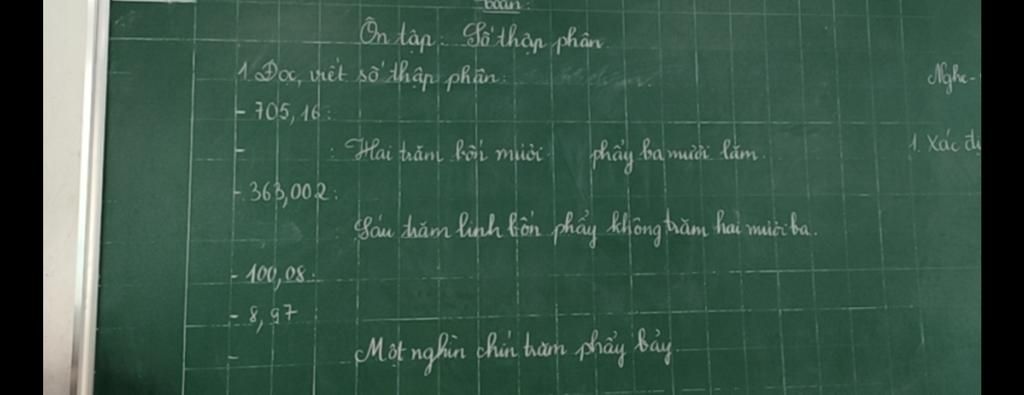 Toán:
Ôn tập: Số thập phân
1. Đọc, viết số thập phân:
- 705,16:
- : Hai trăm bốn mươi phẩy ba mươi lăm.
- 363,002:
Sáu trăm linh bốn phẩy không trăm hai mươi ba.
- 100,08:
- 8,97 :
- Một nghìn chín trăm phẩy bảy.
Nghe -
1. Xác đị